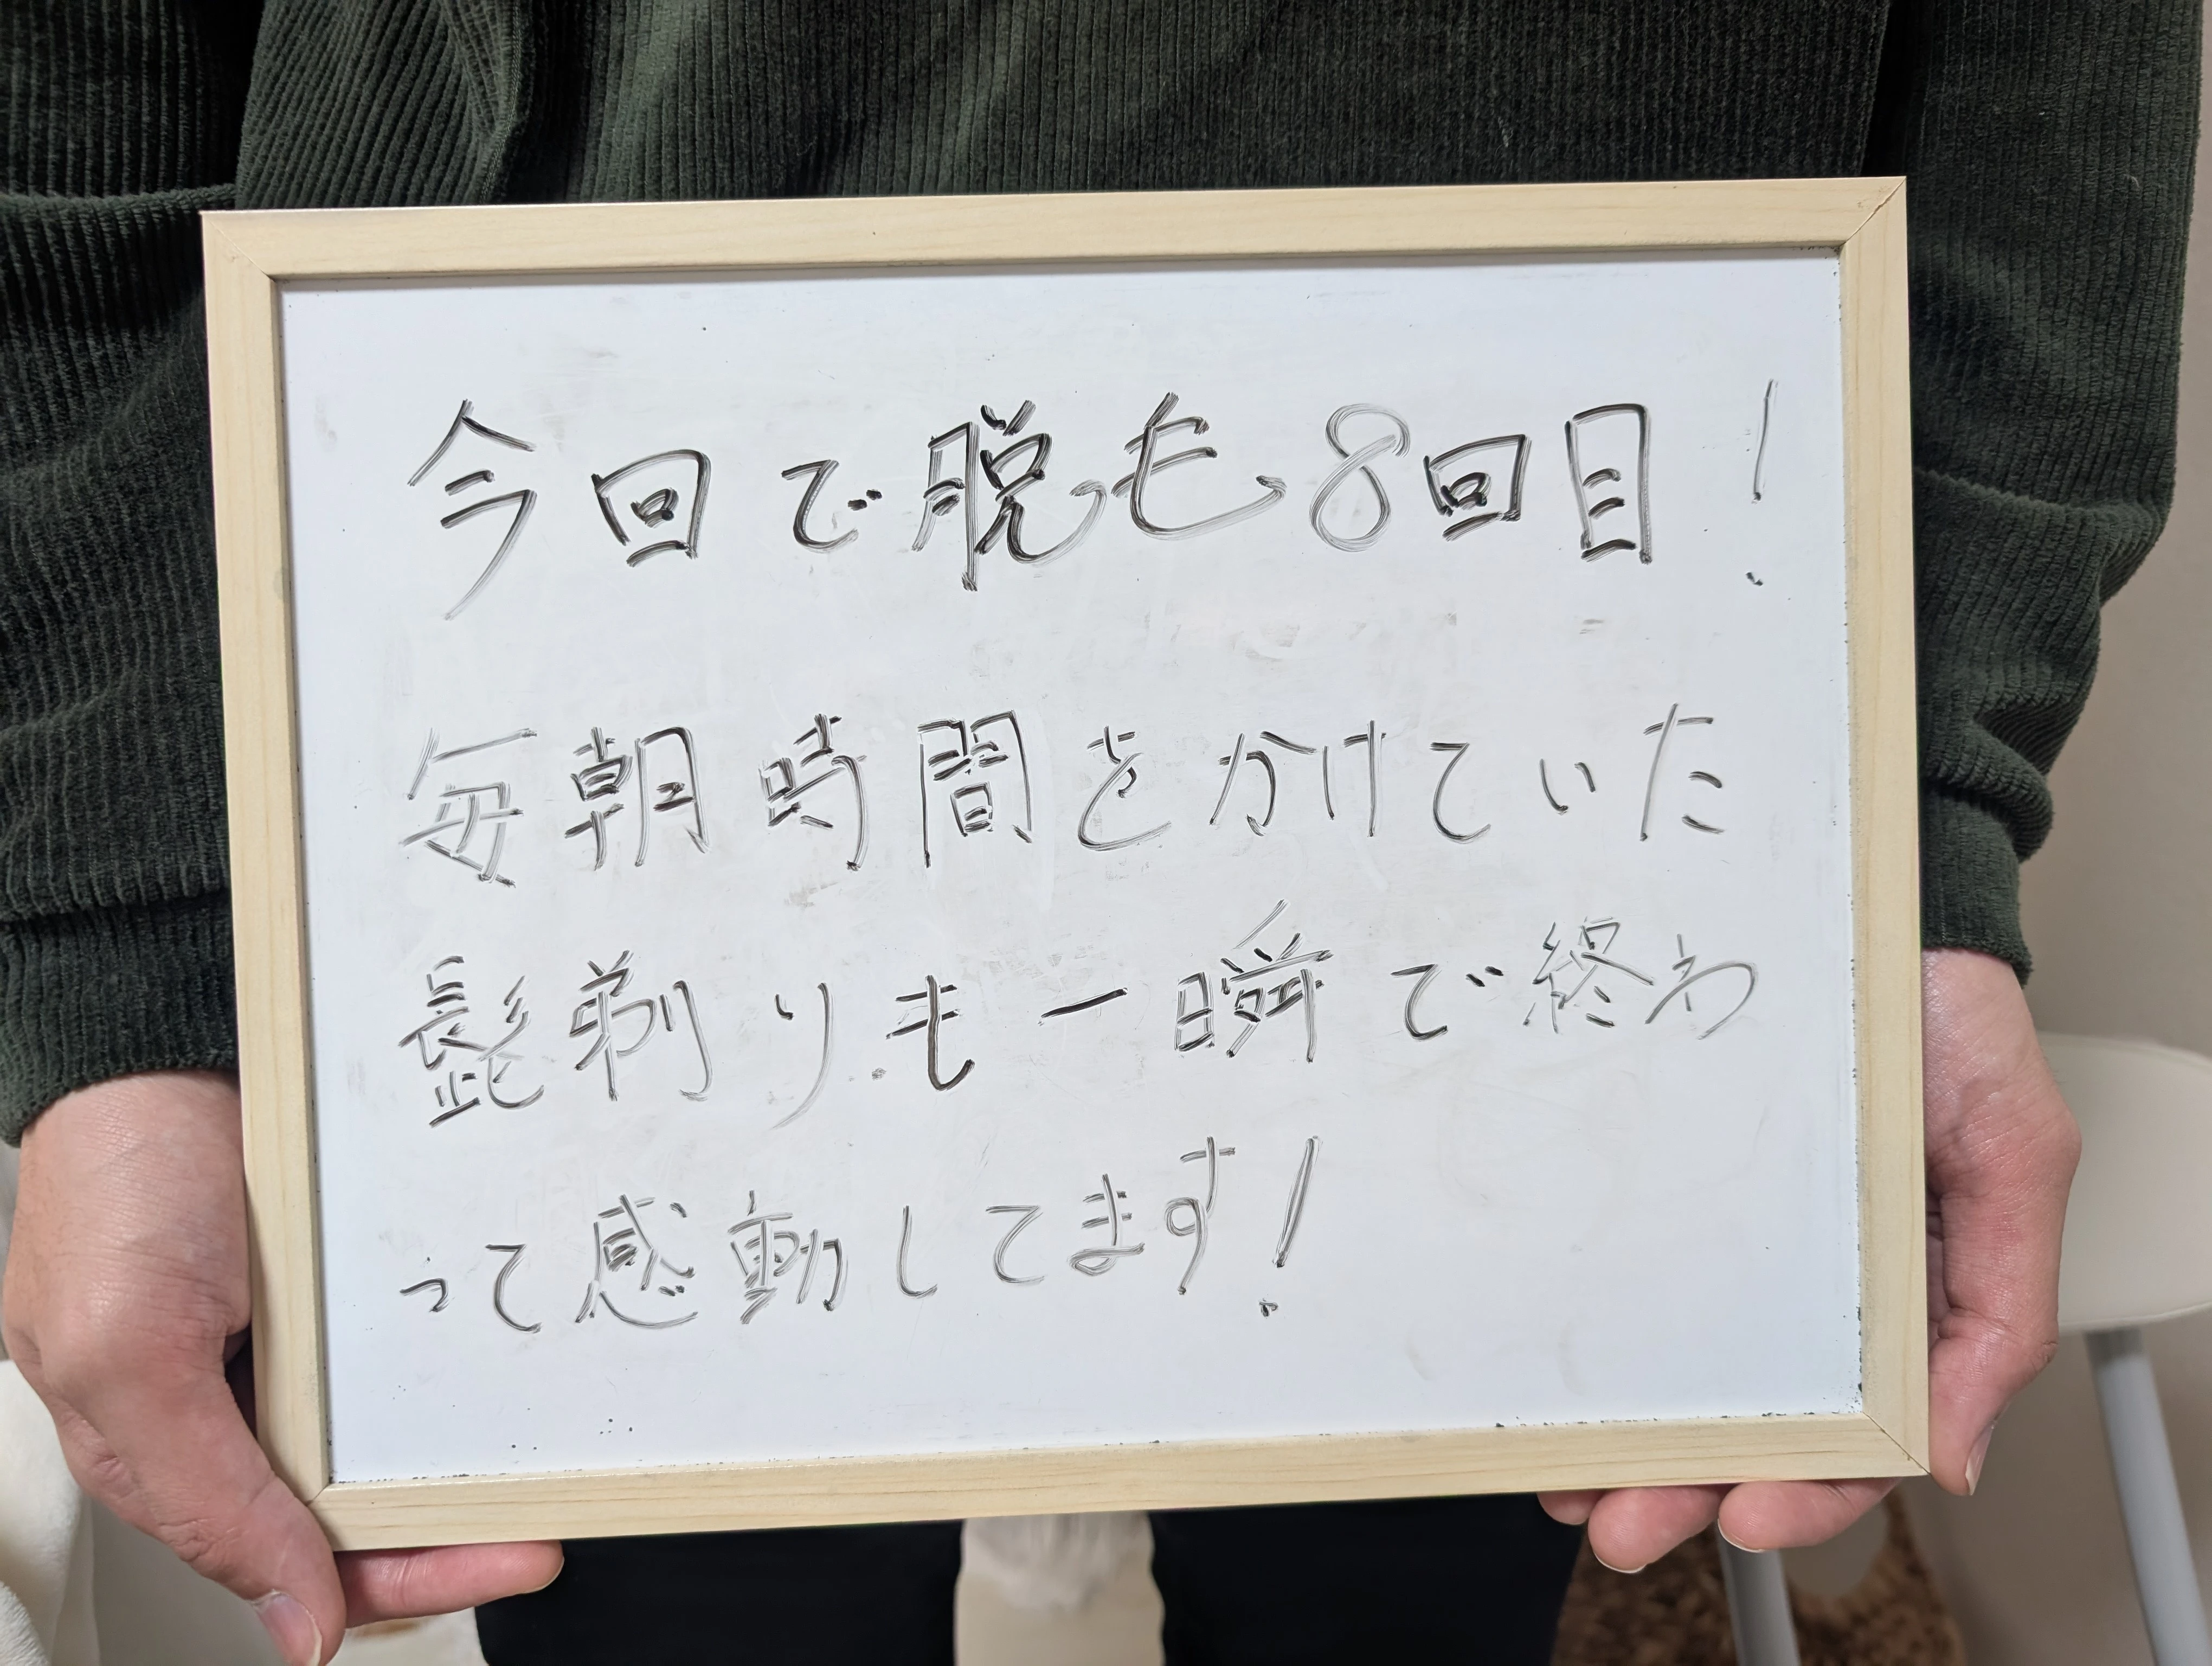 今回で脱毛8回目!
毎朝時間をかけていた
髭剃りも一瞬で終わ
って感動してます!